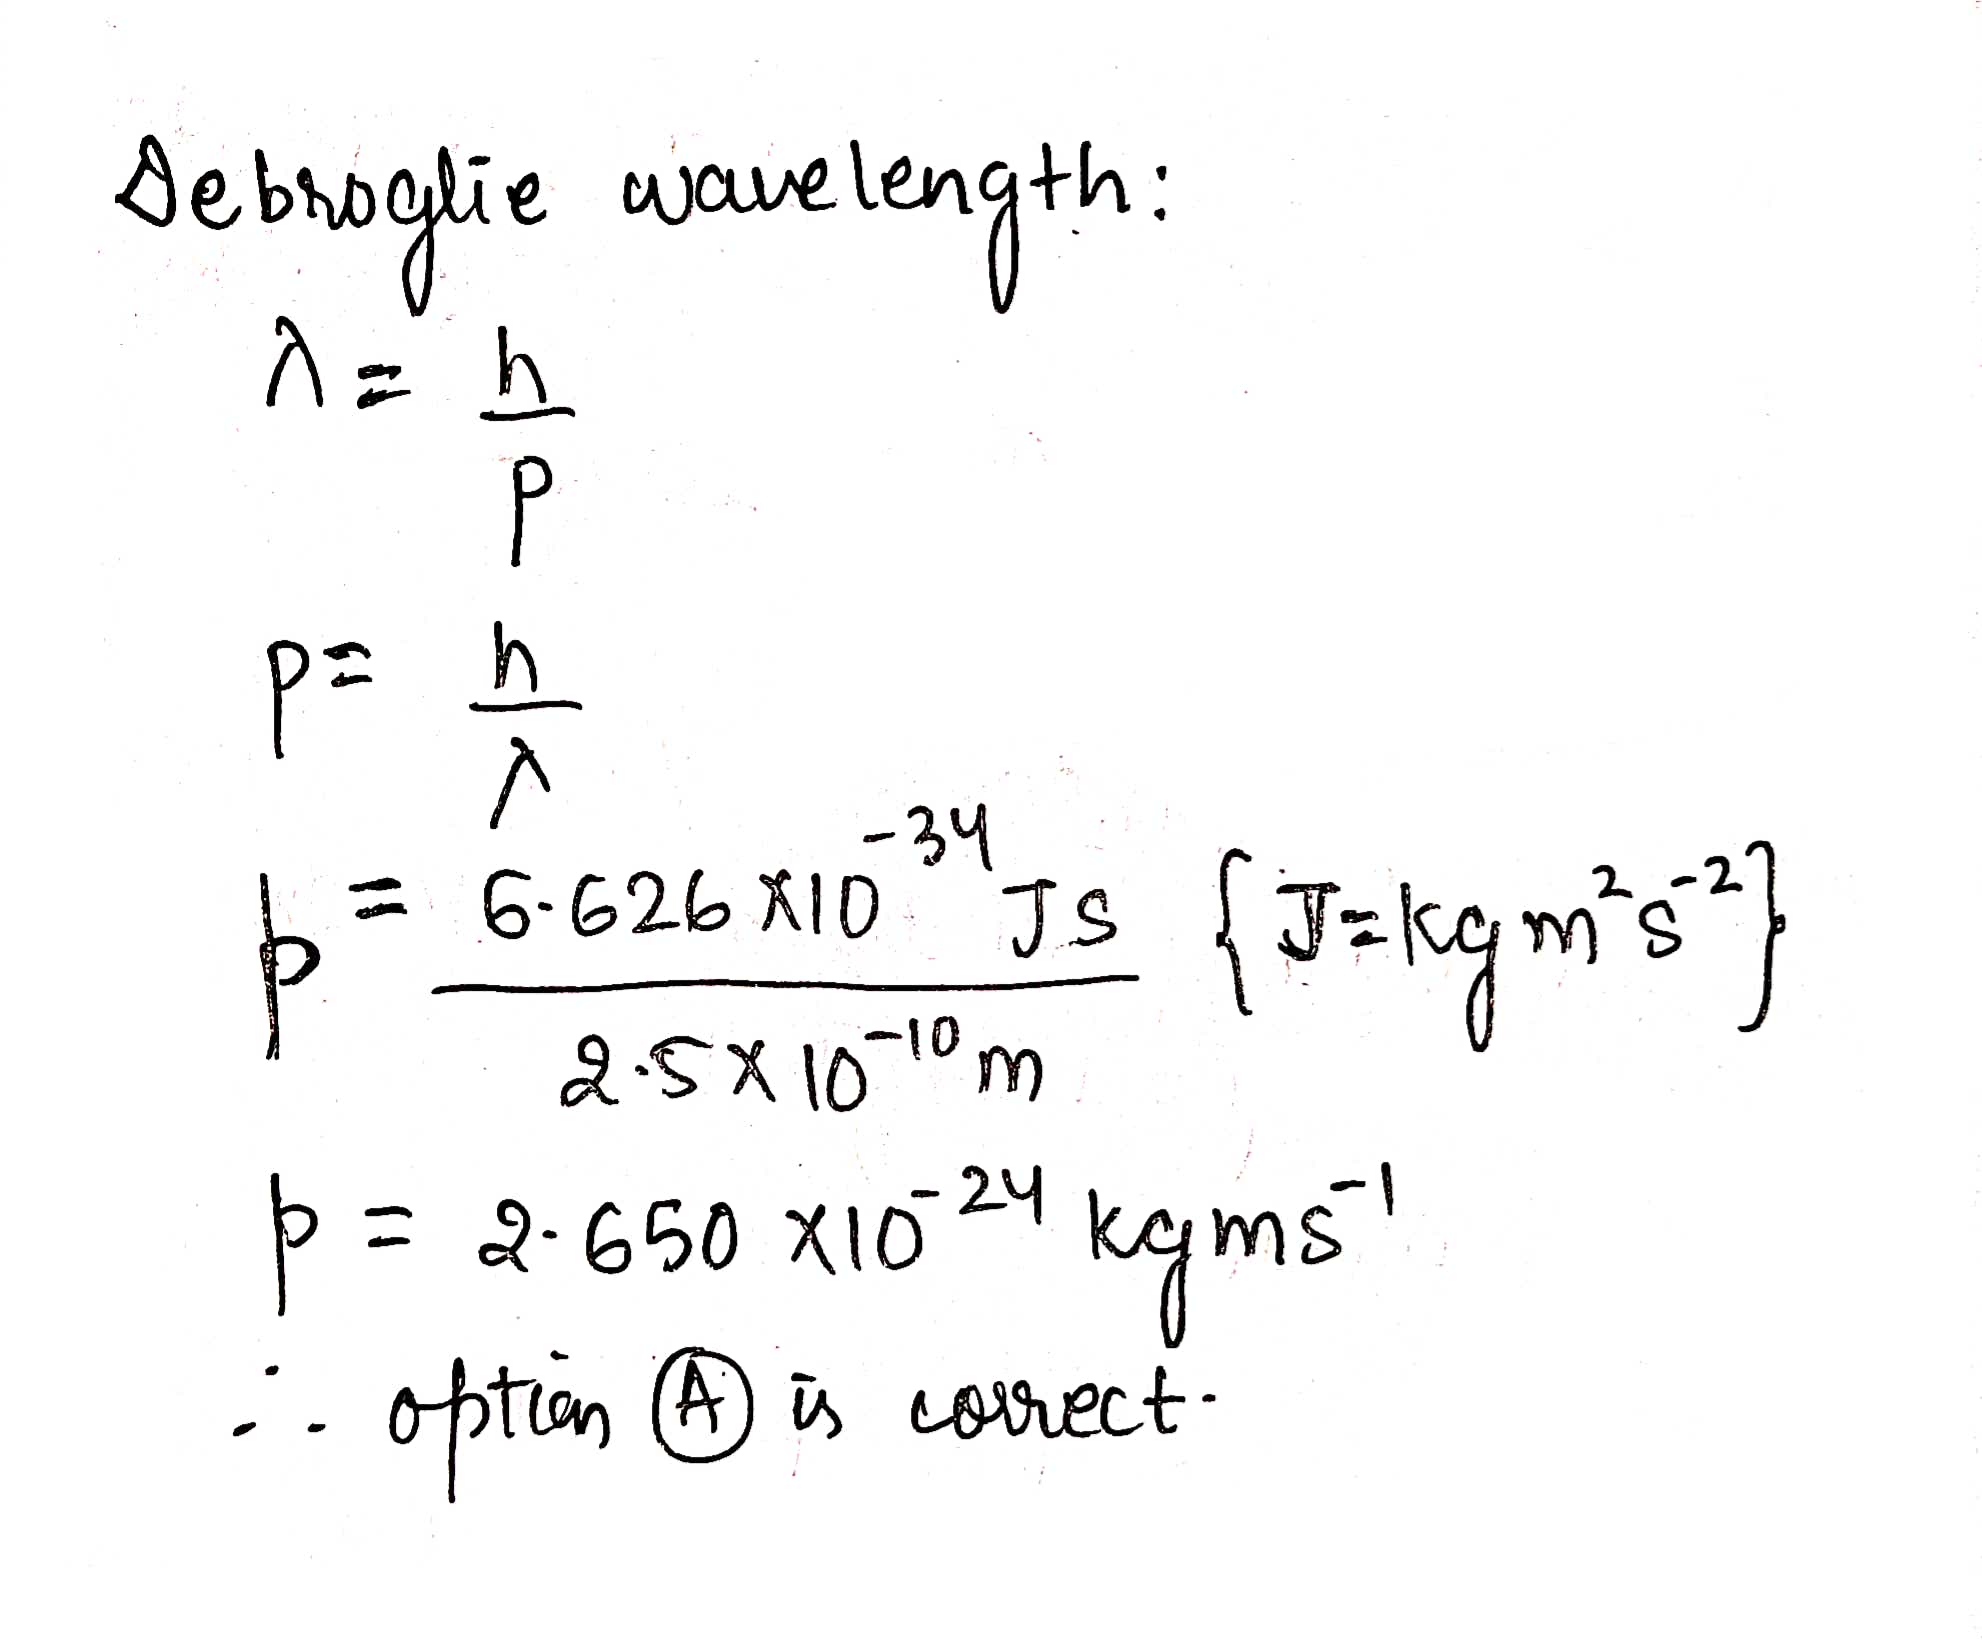 Debroglie wavelength:
λ = h/p
p = h/λ
p = 6.626 x10^-34 Js / 2.5 x 10^-10 m {J=kg m^2 s^-2}
p = 2.650 x10^-24 kgms^-1
∴ option (A) is correct.